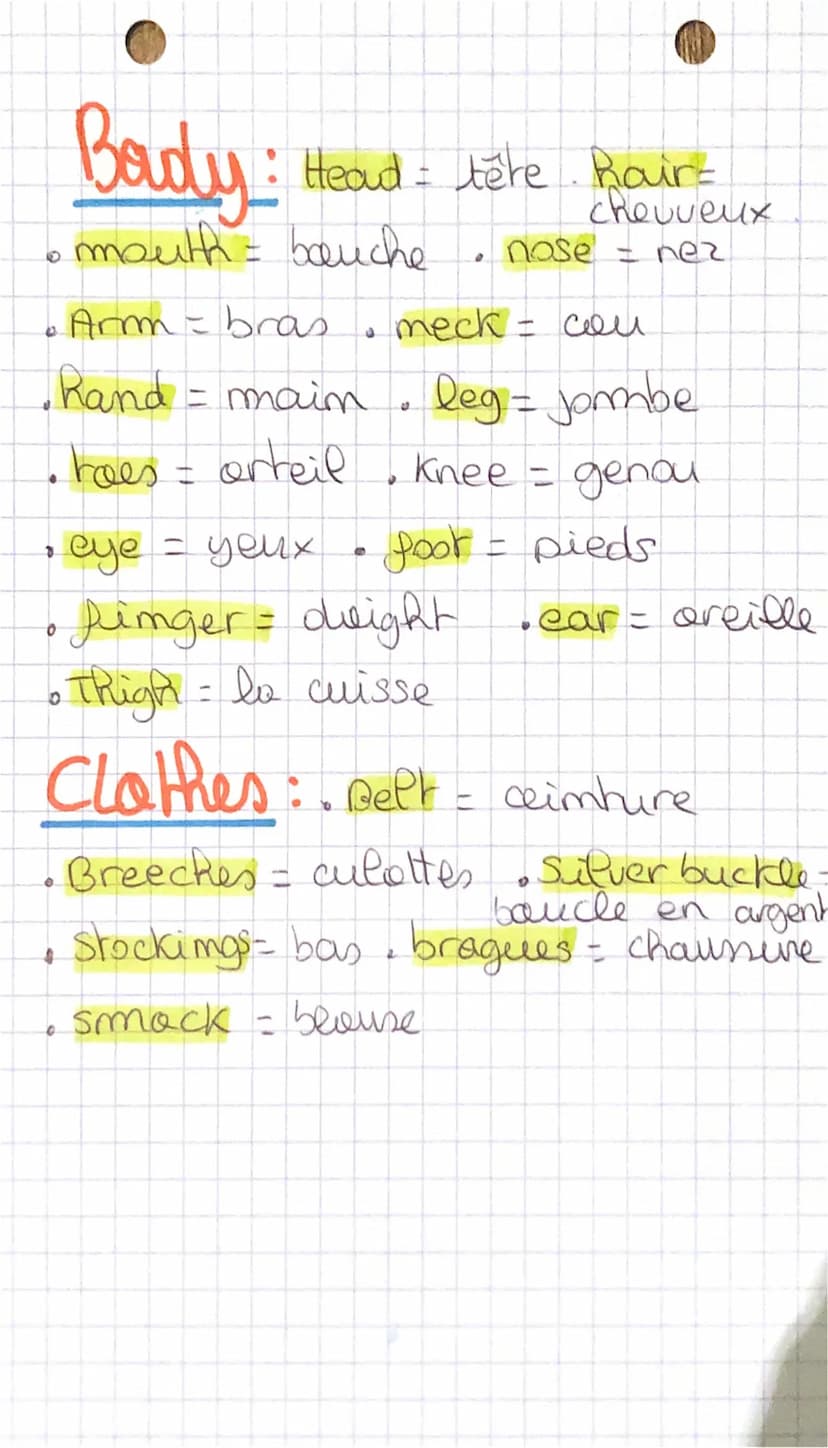 Body : Head = tête . hair =
chevveux .
. mouth = bouche . nose = nez
. Arm = bras . neck = cou
. hand = main . leg = jambe
. toes = orteil . Knee = genou
. eye = yeux . foot = pieds
. finger = doight . ear = oreille
. Thigh = la cuisse
Clothes : . Belt = ceinture
. Breeches = culottes . Silver buckle =
boucle en argent
. Stockings = bas . brogues = chaussure
. smock = blouse